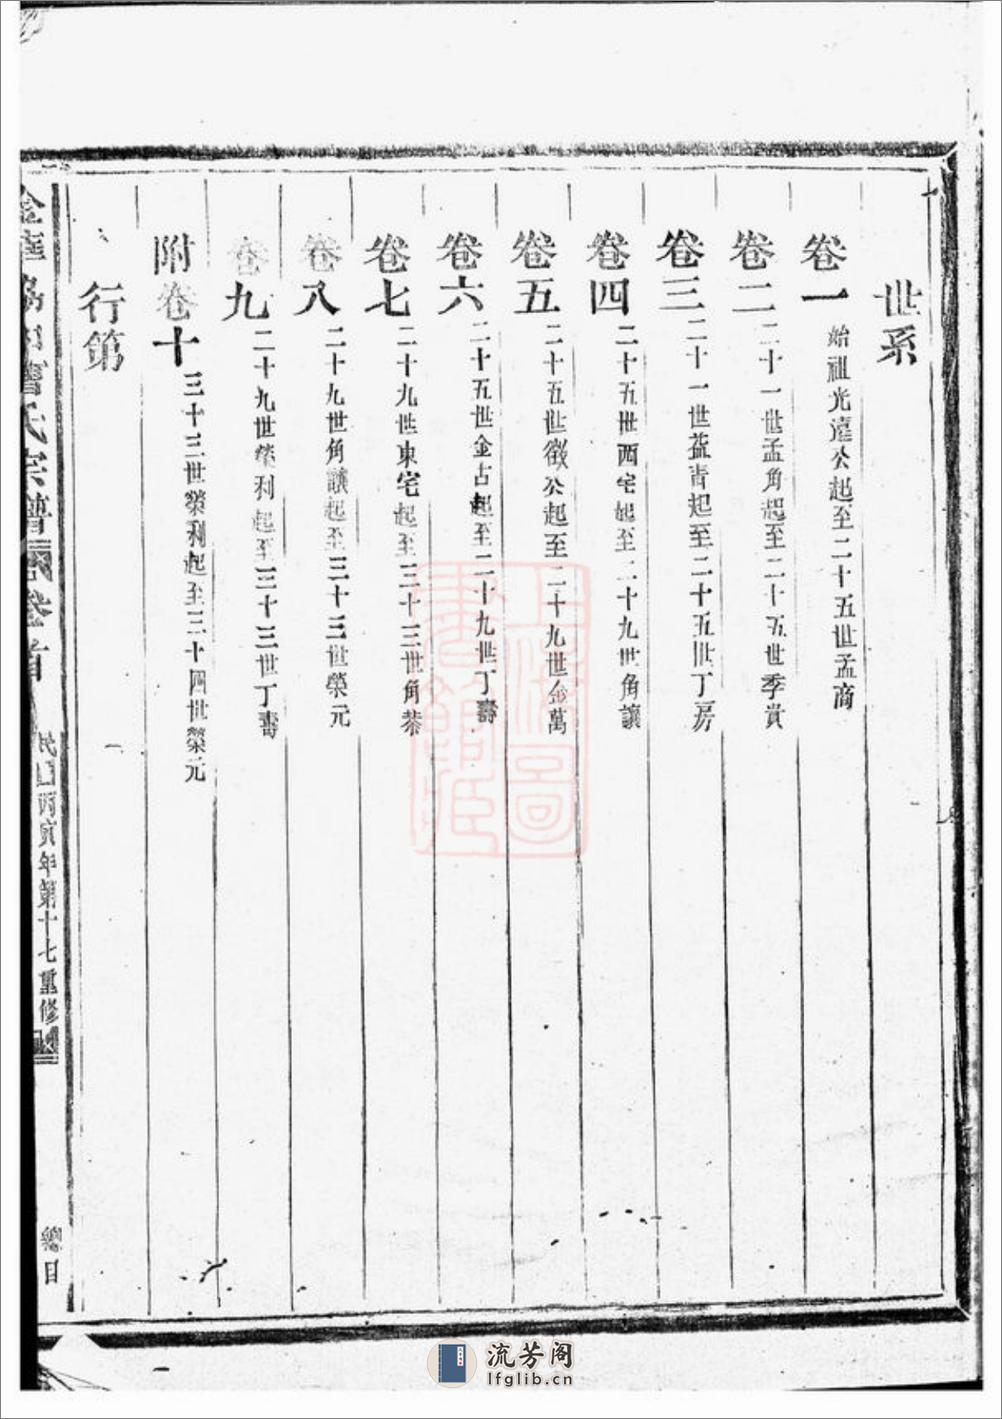 世系
卷一 始祖光遠公起至二十五世孟商
卷二 二十一世孟角起至二十五世季貴
卷三 二十一世益
起至二十五世丁房
卷四 二十五世西宅起至二十九世角讓
卷五 二十五世徵公起至二十九世金萬
卷六 二十五世金占起至二十九世丁壽
卷七 二十九世東宅起至三十三世角恭
卷八 二十九世角讓起至三十三世榮元
卷九 二十九世榮利起至三十三世丁壽
附卷十 三十三世榮利起至三十四世榮元
行第
曹氏宗譜
卷首
民國丙寅年第十七重修
總目
上海圖書館藏
流芳阁
lfglib.cn